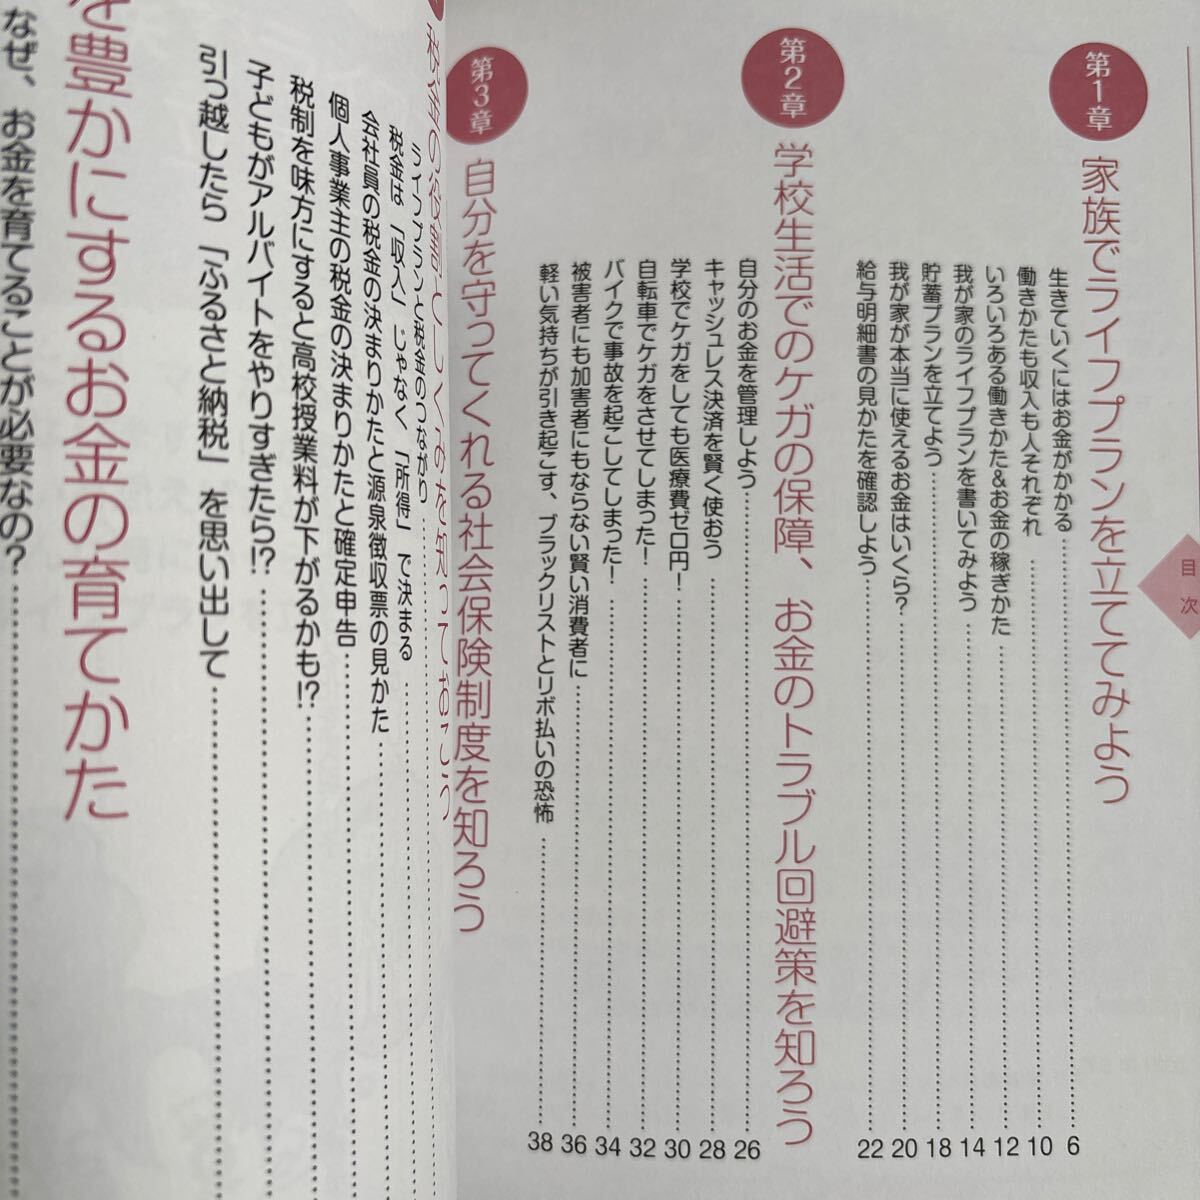 目次
第1章 家族でライフプランを立ててみよう
生きていくにはお金がかかる 6
働きかたも収入も人それぞれ 10
いろいろある働きかた&お金の稼ぎかた 12
我が家のライフプランを書いてみよう 14
貯蓄プランを立てよう 18
我が家が本当に使えるお金はいくら? 20
給与明細書の見かたを確認しよう 22
第2章 学校生活でのケガの保障、お金のトラブル回避策を知ろう
自分のお金を管理しよう 26
キャッシュレス決済を賢く使おう 28
学校でケガをしても医療費ゼロ円! 30
自転車でケガをさせてしまった! 32
バイクで事故を起こしてしまった! 34
被害者にも加害者にもならない賢い消費者に 36
軽い気持ちが引き起こす、ブラックリストとリボ払いの恐怖 38
第3章 自分を守ってくれる社会保険制度を知ろう
税金の役割としくみを知っておこう
ライフプランと税金のつながり
税金は「収入」じゃなく「所得」で決まる
会社員の税金の決まりかたと源泉徴収票の見かた
個人事業主の税金の決まりかたと確定申告
税制を味方にすると高校授業料が下がるかも!?
子どもがアルバイトをやりすぎたら!?
引っ越したら「ふるさと納税」を思い出して
を豊かにするお金の育てかた
なぜ、お金を育てることが必要なの?